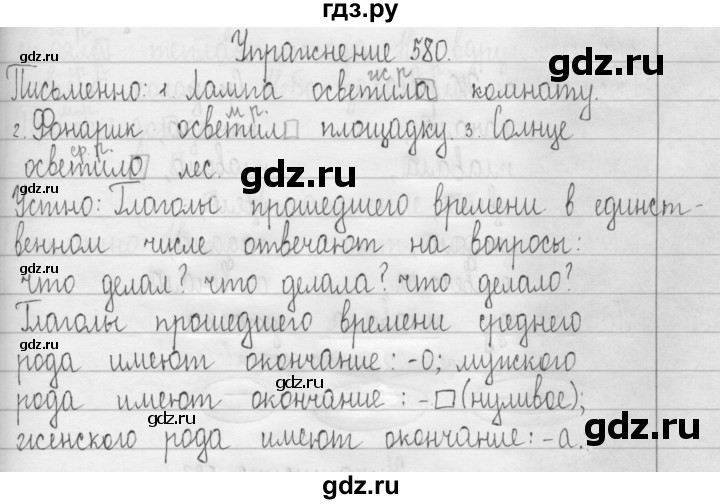 гдз.ру
Упражнение 580.
ж.р.
Письменно: 1. Лампа осветила комнату.
м.р.
2. Фонарик осветил□ площадку. 3. Солнце
ср.р.
осветило лес.
Устно: Глаголы прошедшего времени в единст-
венном числе отвечают на вопросы:
что делал? что делала? что делало?
Глаголы прошедшего времени среднего
рода имеют окончание: -о; мужского
рода имеют окончание: -□ (нуливое);
женского рода имеют окончание: -а.
gdz.ru
gdz.ru
gdz.ru
gdz.ru
gdz.ru
gdz.ru
gdz.ru
gdz.ru
gdz.ru
gdz.ru
gdz.ru
gdz.ru
gdz.ru
gdz.ru